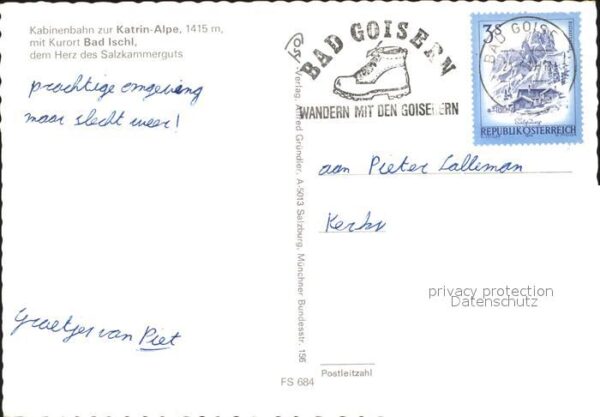 Kabinenbahn zur Katrin-Alpe, 1415 m,
mit Kurort Bad Ischl,
dem Herz des Salzkammerguts
prachtige omgeving
maar slecht weer!
Groetjes van Piet
Verlag Alfred Gründler, A-5013 Salzburg, Münchner Bundesstr. 156
FS 684
BAD GOISERN
WANDERN MIT DEN GOISERERN
BAD GOISE
3 S
REPUBLIK ÖSTERREICH
aan Pieter Salleman
privacy protection
Datenschutz
Postleitzahl